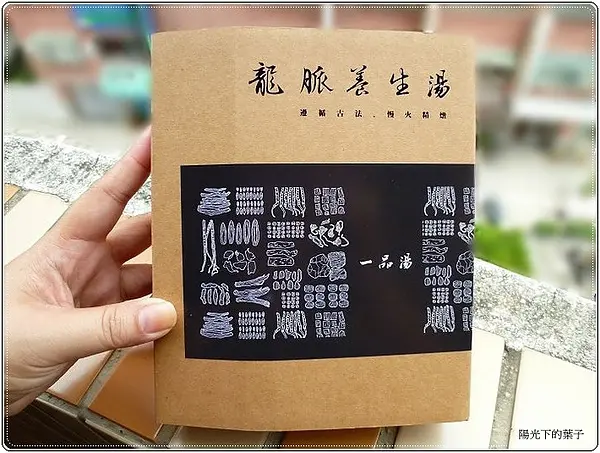 龍脈養生湯
遵循古法．慢火精燉
一品湯
陽光下的葉子